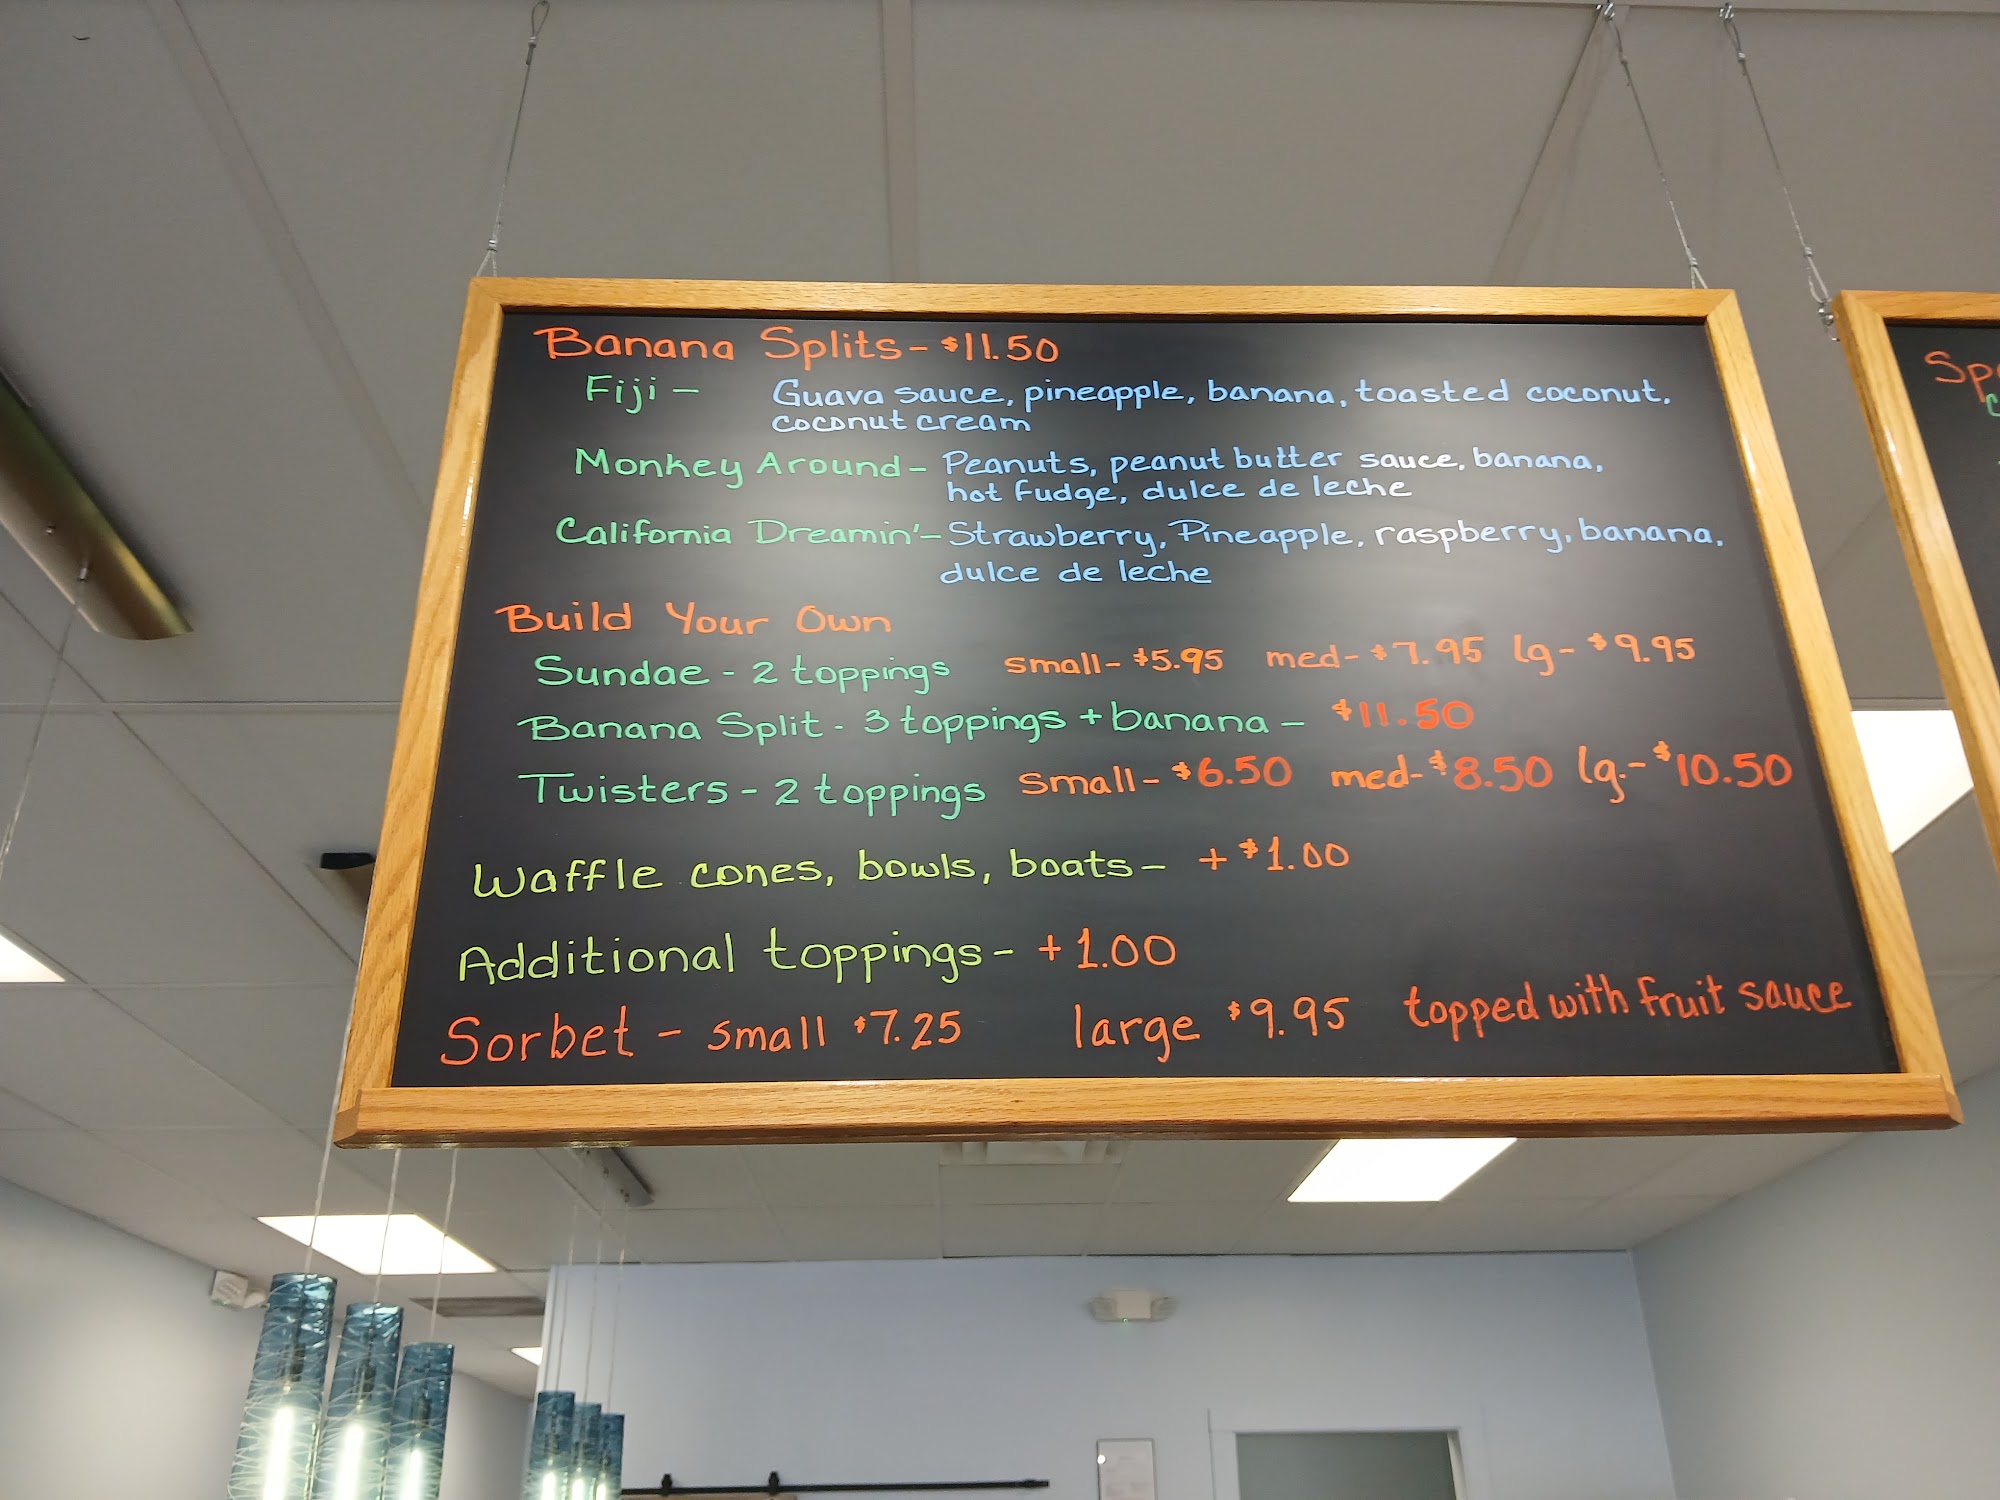 Banana Splits - $11.50
Fiji - Guava sauce, pineapple, banana, toasted coconut,
coconut cream
Monkey Around - Peanuts, peanut butter sauce, banana,
hot fudge, dulce de leche
California Dreamin' - Strawberry, Pineapple, raspberry, banana,
dulce de leche
Build Your Own
Sundae - 2 toppings small - $5.95 med - $7.95 lg - $9.95
Banana Split - 3 toppings + banana - $11.50
Twisters - 2 toppings small - $6.50 med - $8.50 lg. - $10.50
Waffle cones, bowls, boats - + $1.00
Additional toppings - + 1.00
Sorbet - small $7.25 large $9.95 topped with fruit sauce